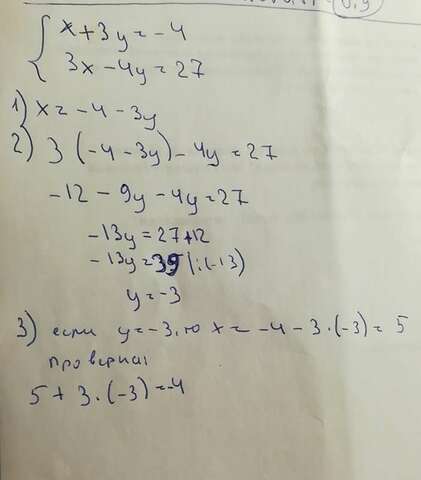 x+3y=-4
3x-4y=27
1) x=-4-3y
2) 3(-4-3y)-4y=27
-12-9y-4y=27
-13y=27+12
-13y=39 |:(-13)
y=-3
3) если y=-3, то x=-4-3·(-3)=5
проверка:
5+3·(-3)=-4